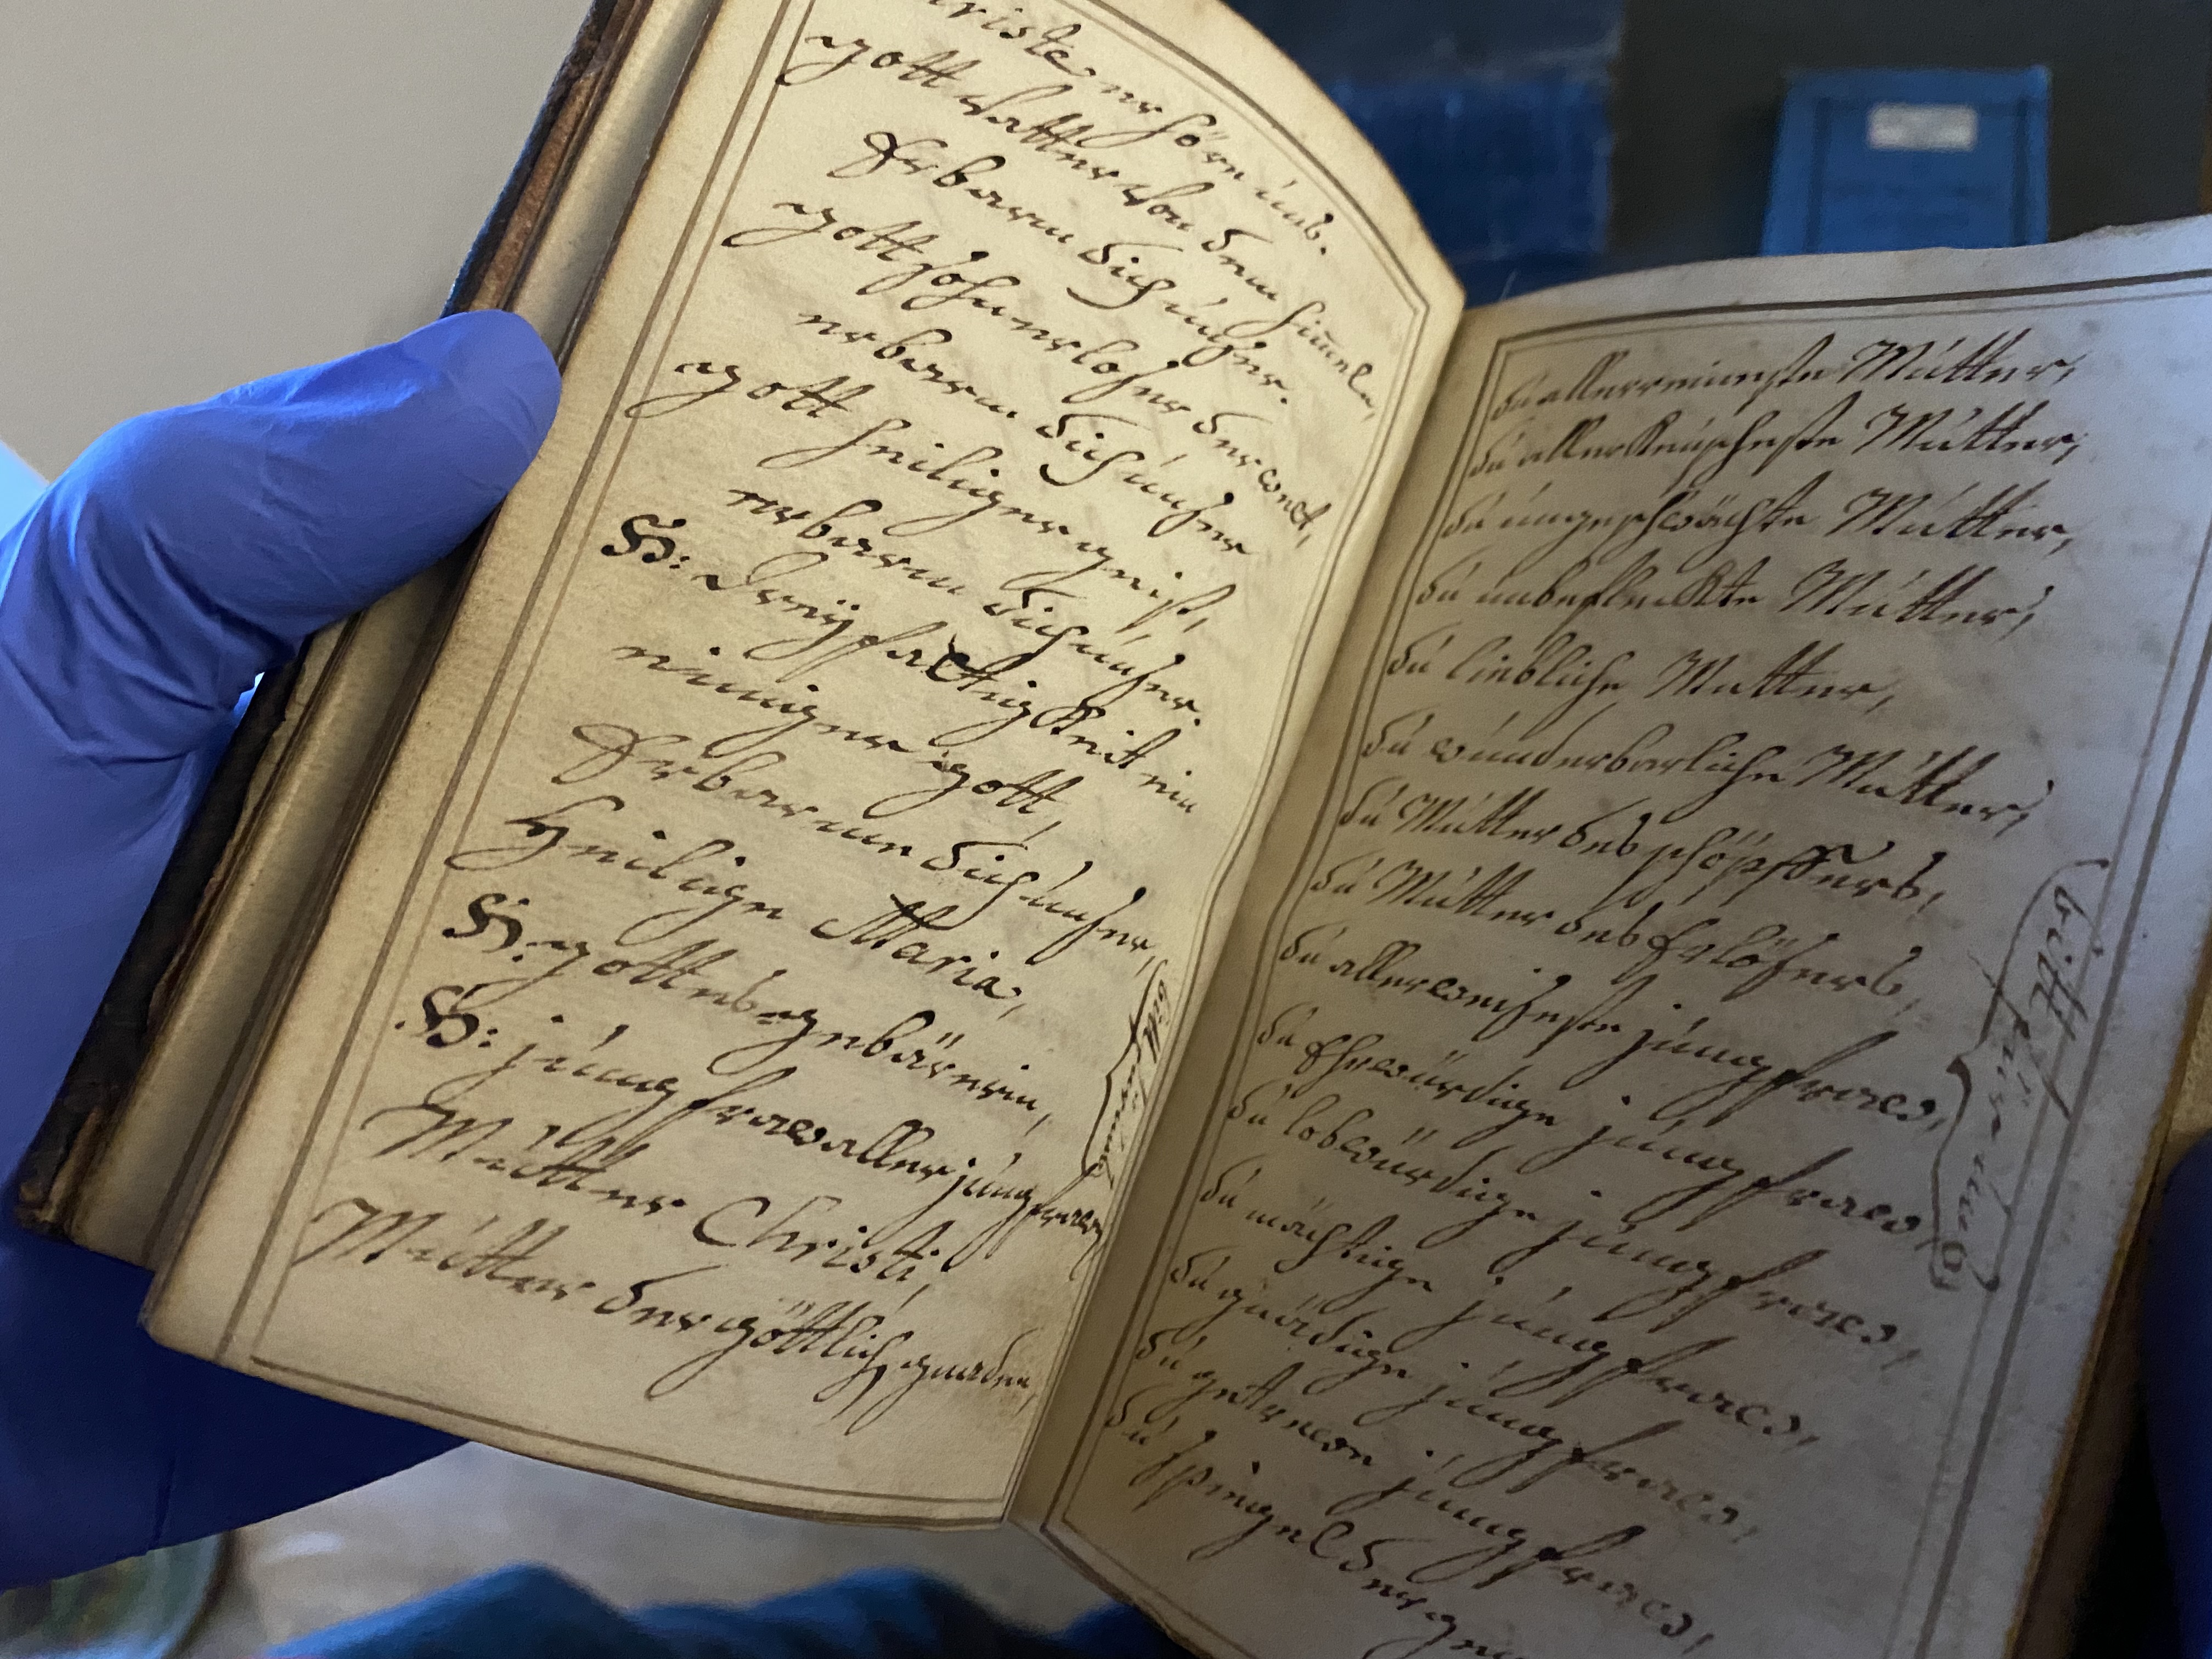 Christe erhöre uns.
gott vatter von dem himele,
Erbarm dich unser.
gott sohn erloser der welt,
erbarm dich unser
gott heiliger geist,
erbarm dich unser.
H: Dreÿfaltigkeit ein
einiger gott,
Erbarme dich unser,
Heilige Maria,
H: gottesgebärerin,
H: jungfraw aller jungfrawen
Mutter Christi,
Mutter der göttlich gnaden,
bitt für uns
du allerreineste Mutter,
du allerkeuscheste Mutter,
du ungeschwächte Mutter,
du unbefleckte Mutter,
du liebliche Mutter,
du wunderbarliche Mutter,
du Mutter des schöpffers,
du Mutter des Erlösers,
du allerweiseste jungfraw,
du Ehrwürdige jungfraw,
du lobwürdige jungfraw,
du mächtige jungfraw,
du gnädige jungfraw,
du getrewe jungfraw,
du spiegel der
bitt für uns